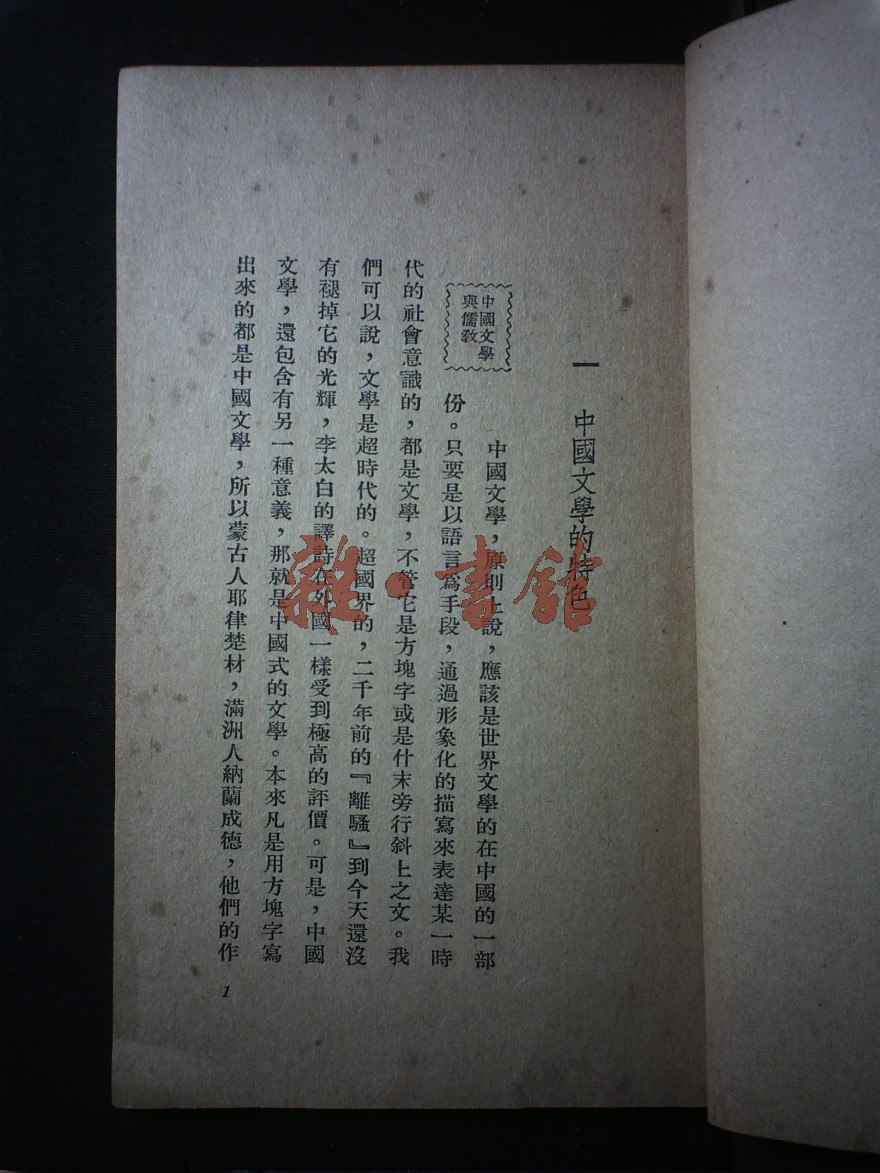 一　中國文學的特色
中國文學
與儒教
中國文學，原則上說，應該是世界文學的在中國的一部
份。只要是以語言爲手段，通過形象化的描寫來表達某一時
代的社會意識的，都是文學，不管它是方塊字或是什末旁行斜上之文。我
們可以說，文學是超時代的。超國界的，二千年前的『離騷』到今天還沒
有褪掉它的光輝，李太白的譯詩在外國一樣受到極高的評價。可是，中國
文學，還包含有另一種意義，那就是中國式的文學。本來凡是用方塊字寫
出來的都是中國文學，所以蒙古人耶律楚材，滿洲人納蘭成德，他們的作
1
雜·書館